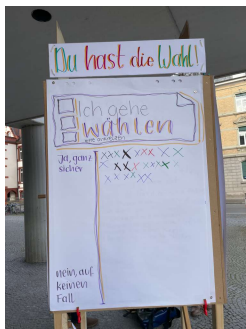 Du hast die Wahl!
Ich gehe
wählen
Ja, ganz
sicher
nein, auf
keinen
Fall